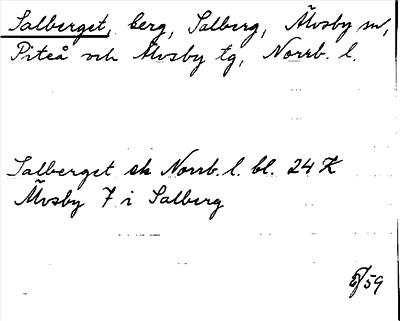 Salberget, berg, Salberg, Älvsby sn,
Piteå och Älvsby tg, Norrb. l.
Salberget sk Norrb. l. bl. 24 K
Älvsby 7 i Salberg
59